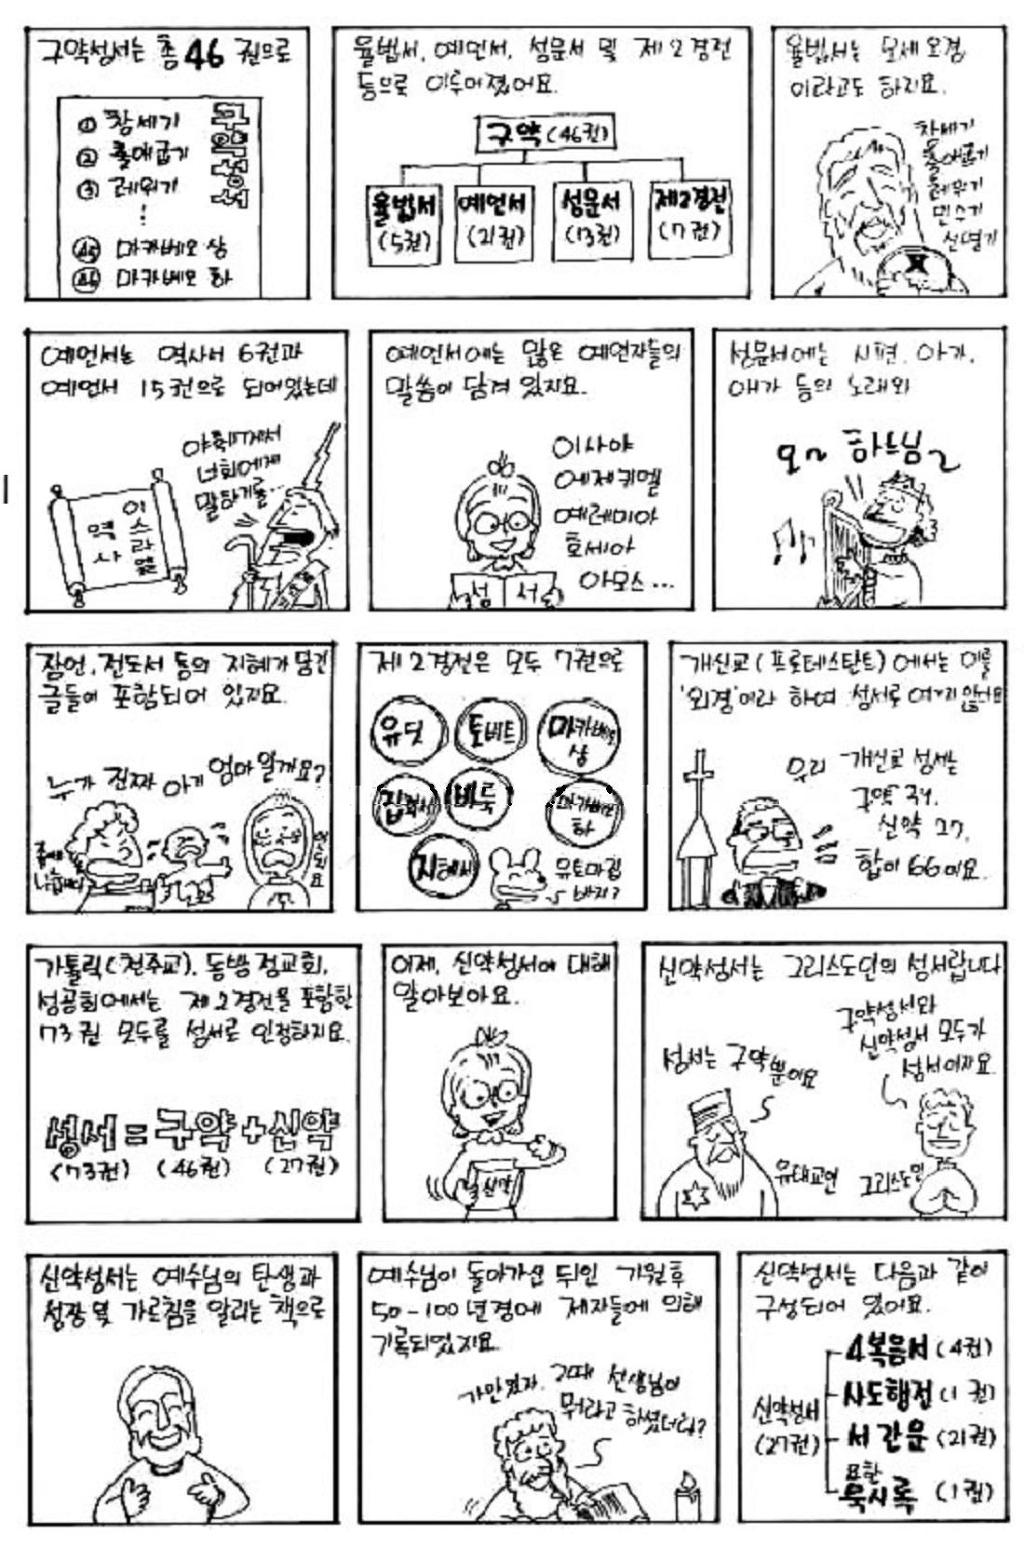 구약성서는 총 46 권으로
구약성서
① 창세기
② 출애굽기
③ 레위기
⋮
㊺ 마카베오 상
㊻ 마카베오 하
율법서, 예언서, 성문서 및 제2경전
등으로 이루어졌어요.
구약(46권)
율법서 예언서 성문서 제2경전
(5권) (21권) (13권) (7권)
율법서는 모세오경
이라고도 하지요.
창세기
출애굽기
레위기
민수기
신명기
예언서는 역사서 6권과
예언서 15권으로 되어있는데
이스라엘
역사
야훼께서
너희에게
말하기를..
예언서에는 많은 예언자들의
말씀이 담겨 있지요.
이사야
에제키엘
예레미야
호세아
아모스...
성서
성문서에는 시편, 아가,
애가 등의 노래와
오~ 하느님~
잠언, 전도서 등의 지혜가 담긴
글들이 포함되어 있지요.
누가 진짜 아기 엄마일까요?
제2경전은 모두 7권으로
유딧 토비트 마카베오 상
집회서 바룩 마카베오 하
지혜서
개신교(프로테스탄트)에서는 이를
'외경'이라 하여 성서로 여기지 않아요
우리 개신교 성서는
구약 39,
신약 27,
합이 66이요.
가톨릭(천주교), 동방 정교회,
성공회에서는 제2경전을 포함한
73권 모두를 성서로 인정하지요.
성서=구약+신약
(73권) (46권) (27권)
이제, 신약성서에 대해
알아보아요.
신약
신약성서는 그리스도인의 성서랍니다
성서는 구약뿐이요
유대교인
구약성서와
신약성서 모두가
성서이지요.
그리스도인
신약성서는 예수님의 탄생과
성장 및 가르침을 알리는 책으로
예수님이 돌아가신 뒤인 기원후
50-100년경에 제자들에 의해
기록되었지요.
가만있자, 그때 선생님이
뭐라고 하셨더라?
신약성서는 다음과 같이
구성되어 있어요.
신약성서
(27권)
4복음서 (4권)
사도행전 (1권)
서간문 (21권)
요한
묵시록 (1권)